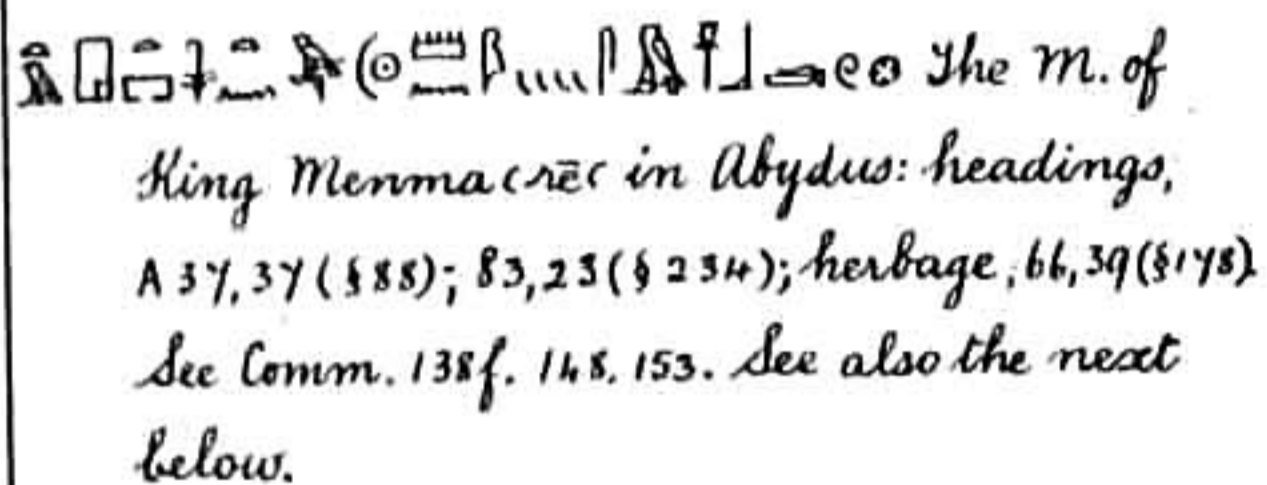 The M. of
King Menmaꜥrēꜥ in Abydus: headings,
A 37,37 (§88); 83,23 (§234); herbage, 66,39 (§178).
See Comm. 138f. 148. 153. See also the next
below.